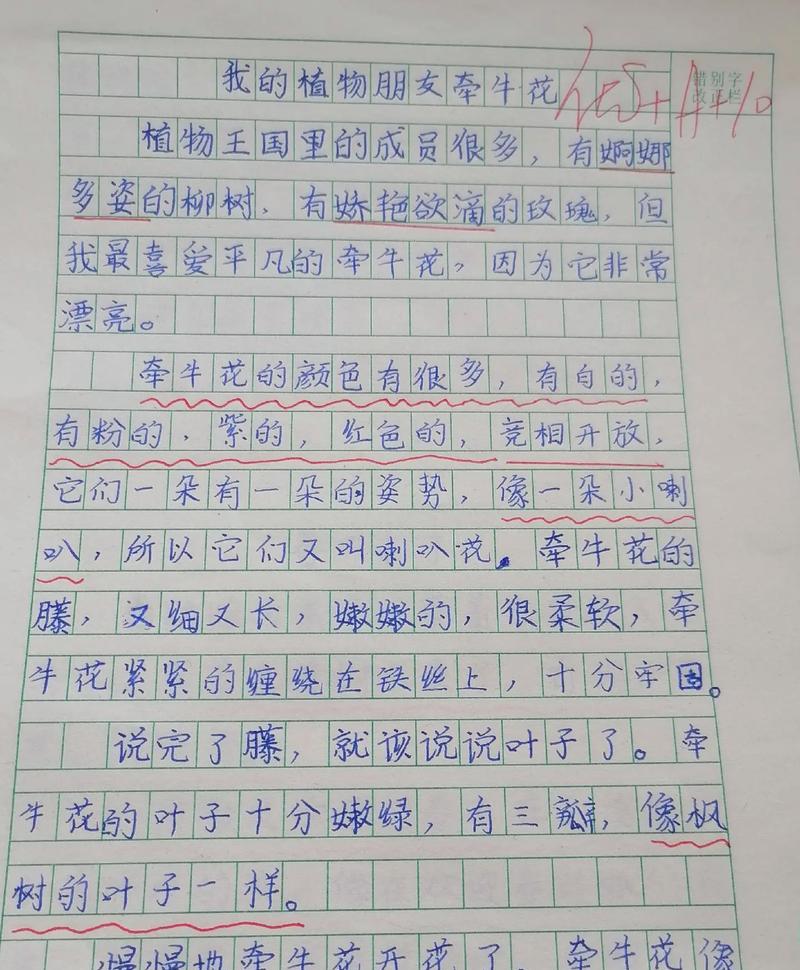 我的植物朋友牵牛花
错别字
改正栏
植物王国里的成员很多，有婀娜
多姿的柳树，有娇艳欲滴的玫瑰，但
我最喜爱平凡的牵牛花，因为它非常
漂亮。
牵牛花的颜色有很多，有白的，
有粉的，紫的，红色的，竞相开放，
它们一朵有一朵的姿势，像一朵小喇
叭，所以它们又叫喇叭花。牵牛花的
藤，又细又长，嫩嫩的，很柔软，牵
牛花紧紧的缠绕在铁丝上，十分牢固。
说完了藤，就该说说叶子了。牵
牛花的叶子十分嫩绿，有三瓣，像枫
树的叶子一样。
慢慢地牵牛花开花了，牵牛花像